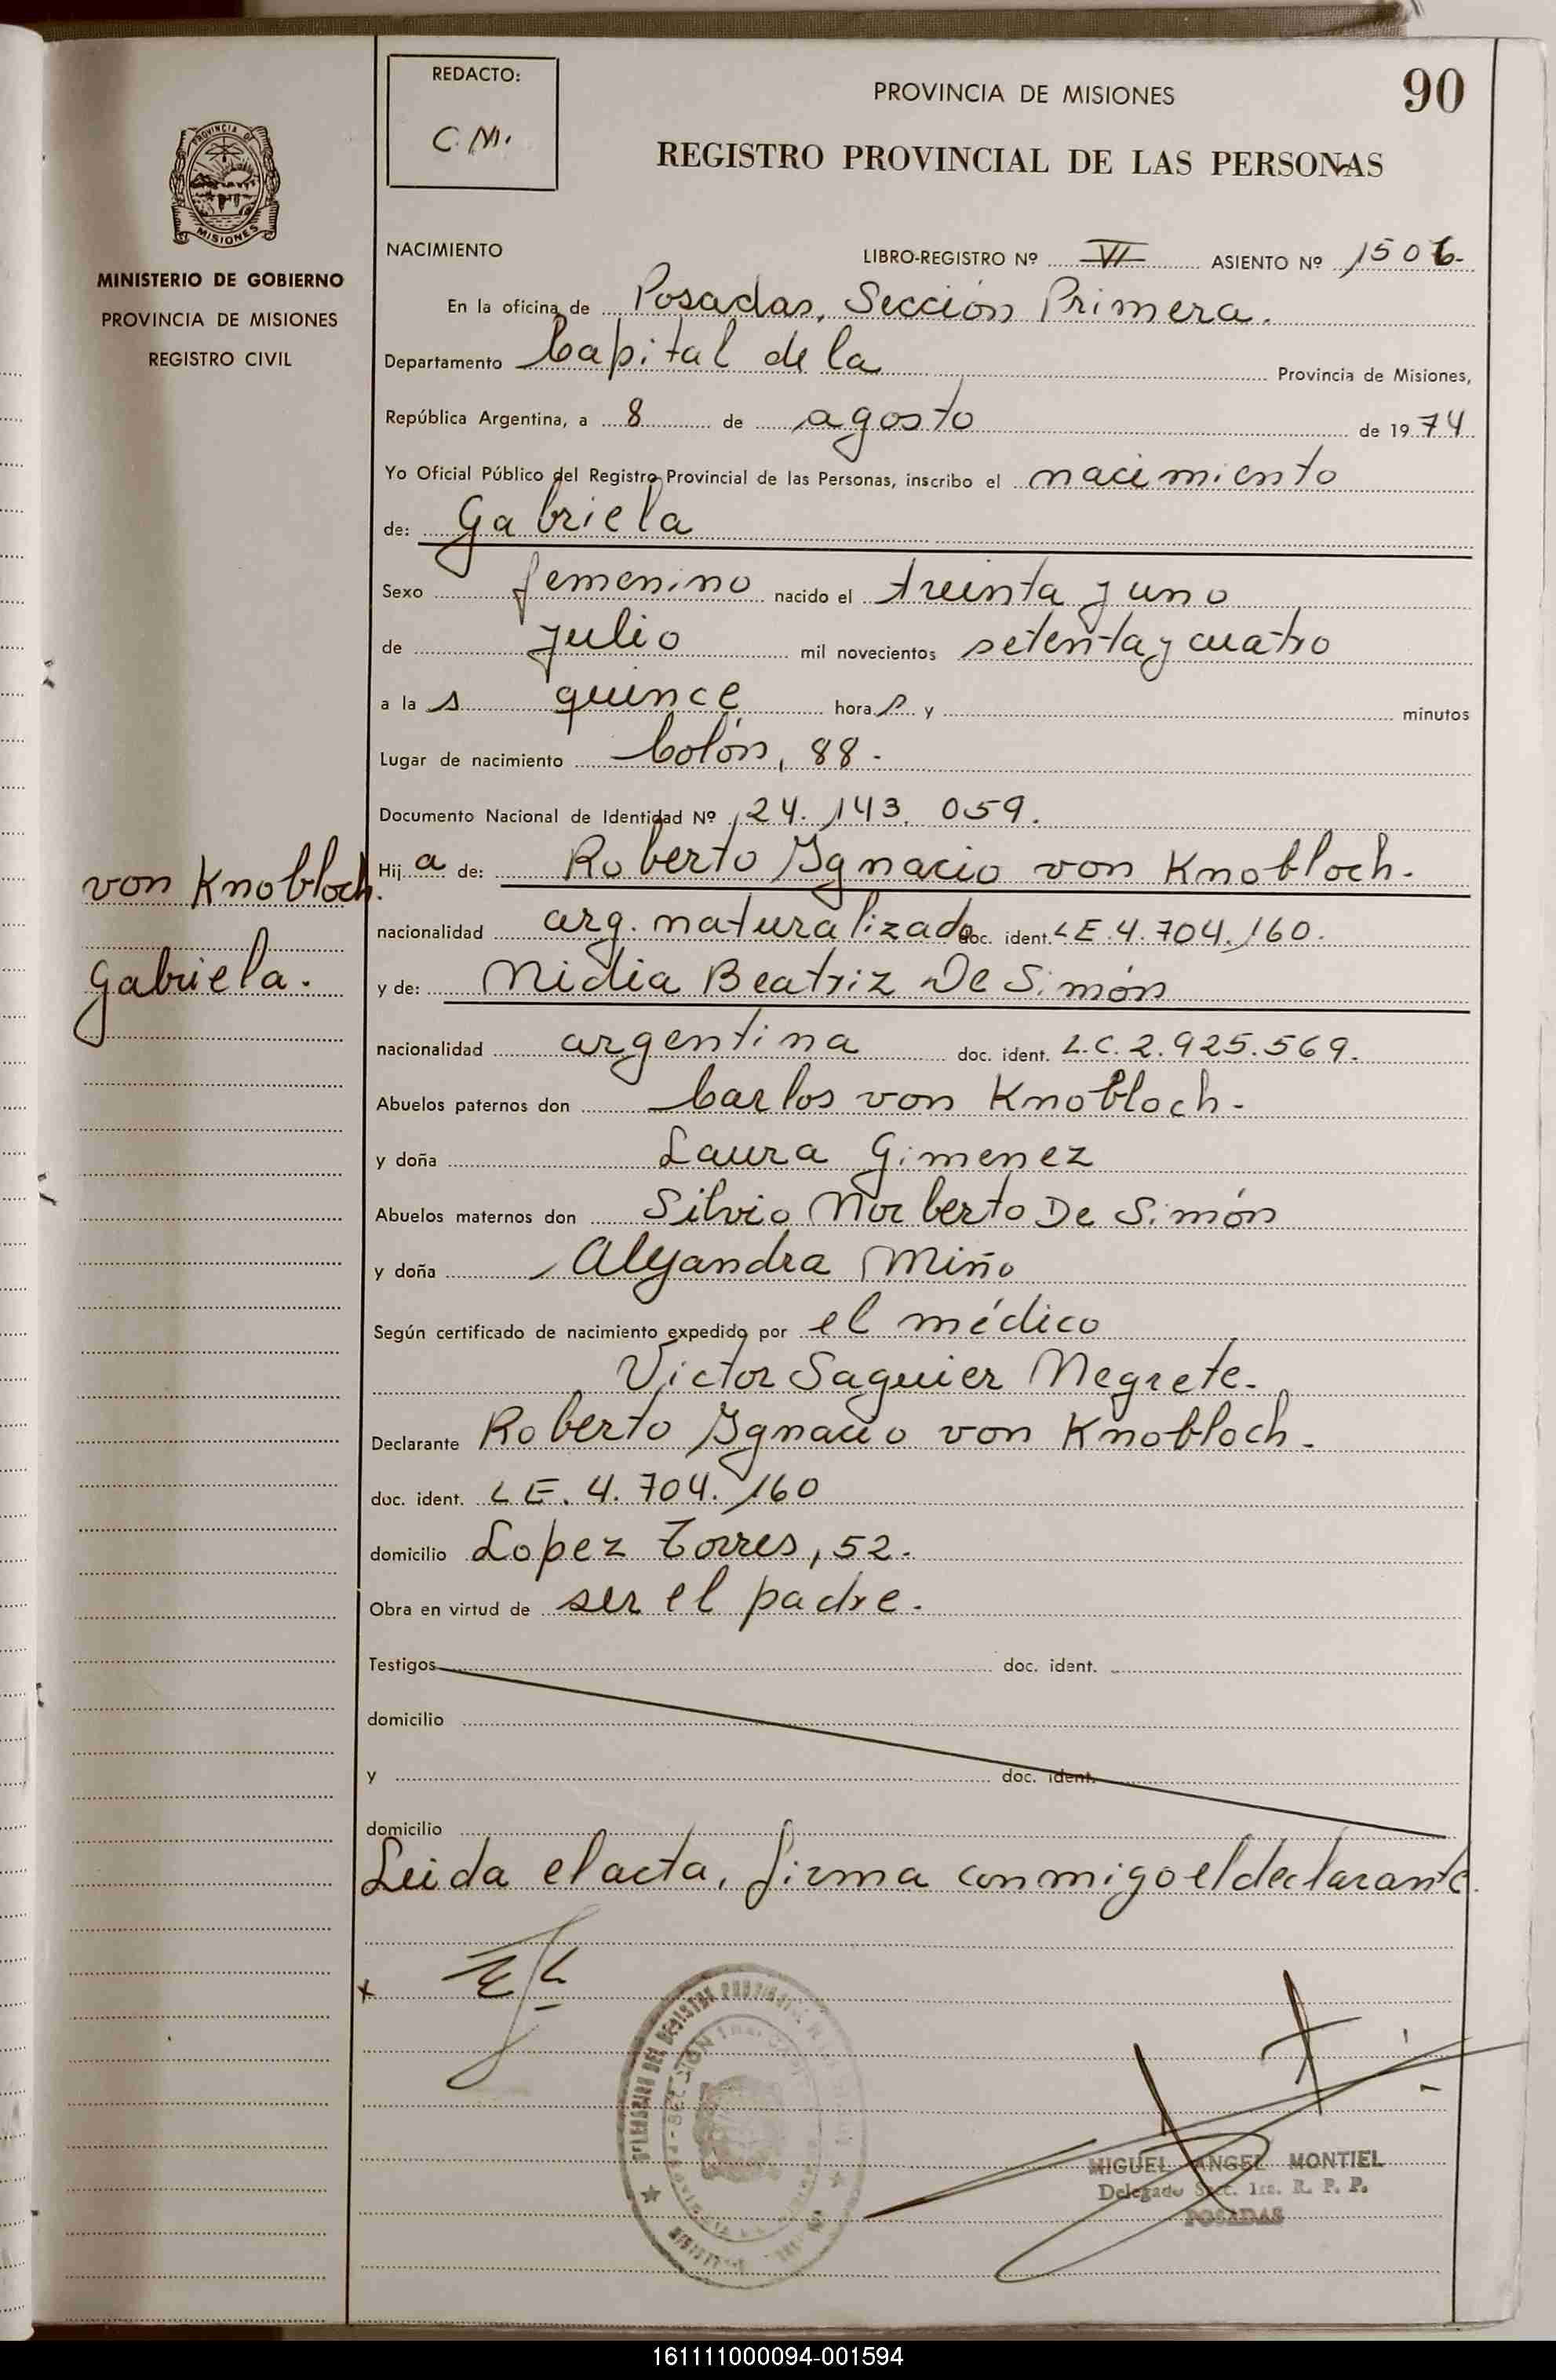 REDACTO:
C. M.
PROVINCIA DE MISIONES
90
REGISTRO PROVINCIAL DE LAS PERSONAS
PROVINCIA DE
MISIONES
MINISTERIO DE GOBIERNO
PROVINCIA DE MISIONES
REGISTRO CIVIL
NACIMIENTO LIBRO-REGISTRO Nº VI ASIENTO Nº 1506-
En la oficina de Posadas, Sección Primera.
Departamento Capital de la Provincia de Misiones,
República Argentina, a 8 de agosto de 1974
Yo Oficial Público del Registro Provincial de las Personas, inscribo el nacimiento
de: Gabriela
Sexo femenino nacido el treinta y uno
de julio mil novecientos setenta y cuatro
a la s quince hora s y minutos
Lugar de nacimiento Colón, 88-
Documento Nacional de Identidad Nº 24.143.059.
Hij a de: Roberto Ygnacio von Knobloch.
von Knobloch.
nacionalidad arg. naturalizado doc. ident. LE.4.704.160.
Gabriela.
y de: Nidia Beatriz De Simón
nacionalidad argentina doc. ident. L.C. 2.925.569.
Abuelos paternos don Carlos von Knobloch-
y doña Laura Gimenez
Abuelos maternos don Silvio Norberto De Simón
y doña Alejandra Miño
Según certificado de nacimiento expedido por el médico
Victor Saguier Negrete-
Declarante Roberto Ygnacio von Knobloch.
doc. ident. LE. 4.704.160
domicilio Lopez Torres, 52.
Obra en virtud de ser el padre.
Testigos doc. ident.
domicilio
y doc. ident.
domicilio
Leida el acta, firma conmigo el declarante.
MIGUEL ANGEL MONTIEL
Delegado Secc. 1ra. R. P. P.
POSADAS
161111000094-001594